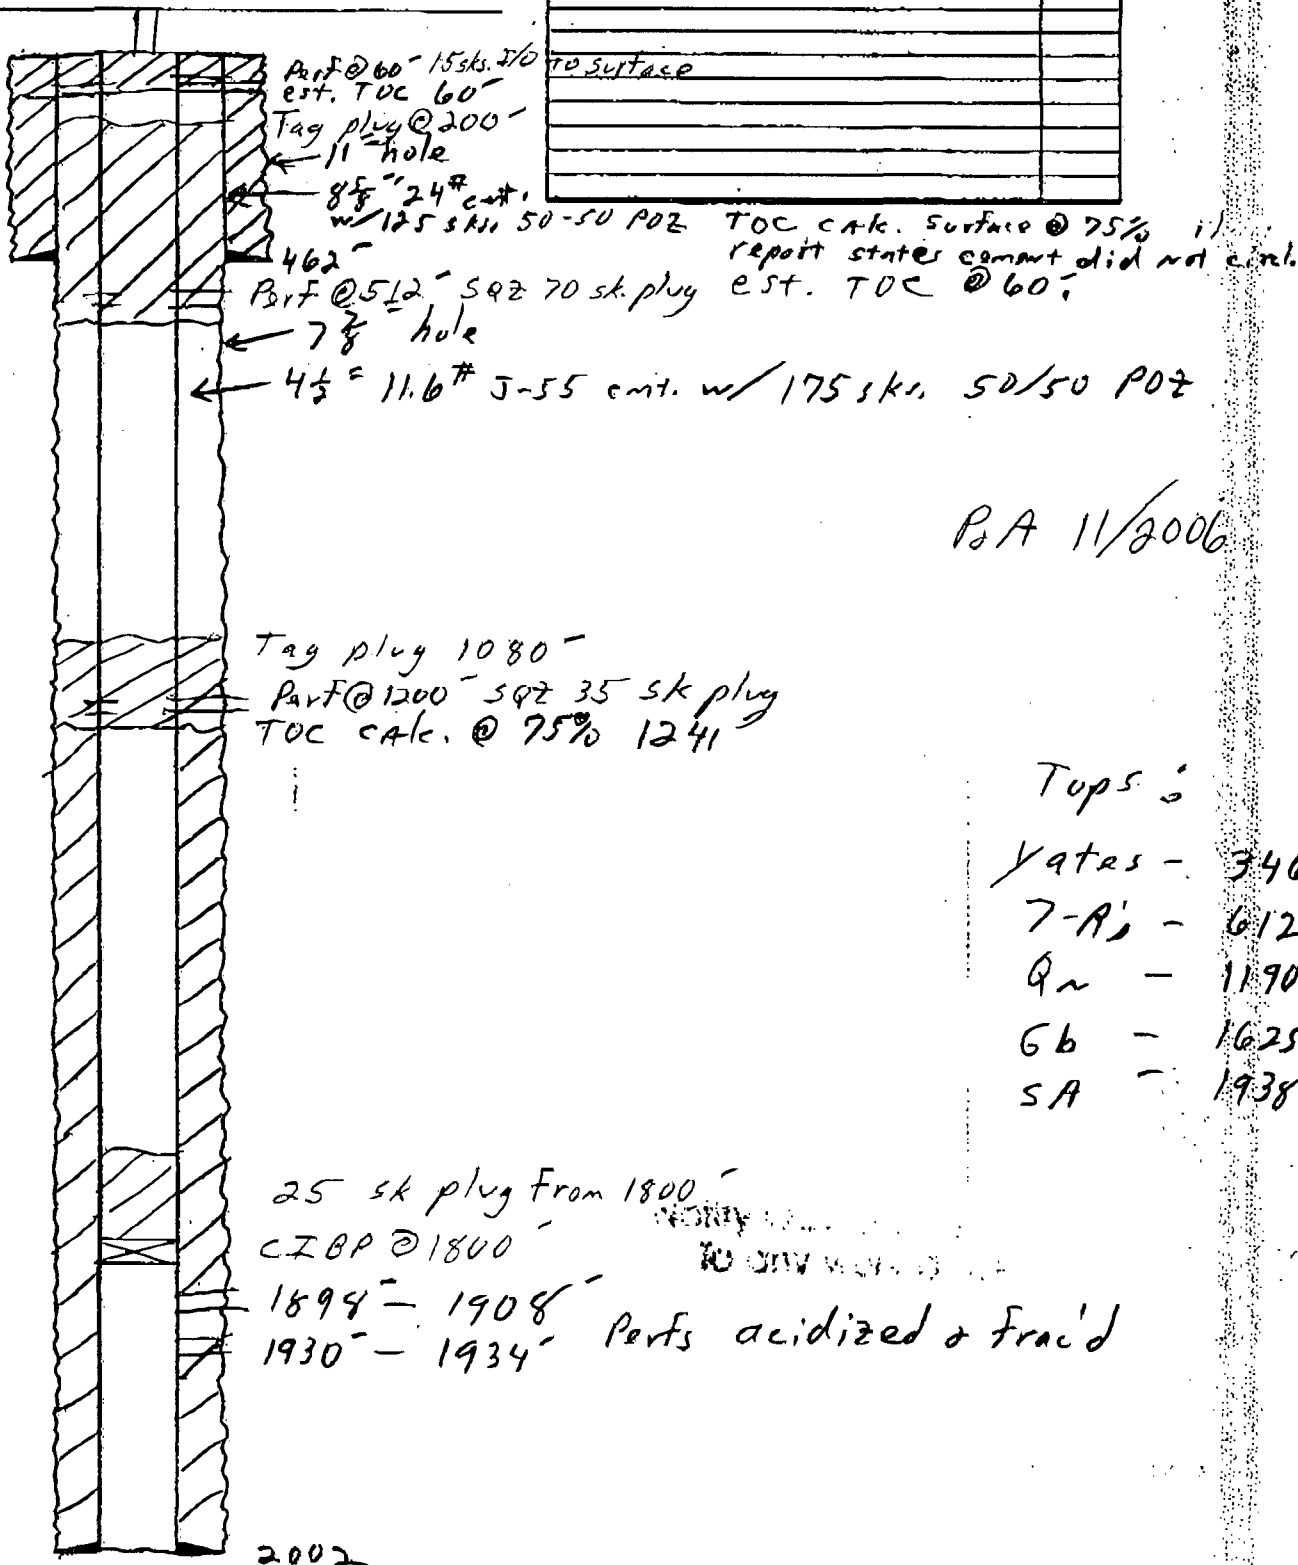 Perf @ 60' 15 sks. I/O to surface
est. TOC 60'
Tag plug @ 200'
11" hole
8 5/8" 24# cmt.
w/ 125 sks. 50-50 POZ TOC cAlc. surface @ 75%
report states cement did not circl.
462'
Perf @ 512' SQZ 70 sk. plug est. TOC @ 60'.
7 7/8" hole
4 1/2" 11.6# J-55 cmt. w/ 175 sks. 50/50 POZ
P&A 11/2006
Tag plug 1080'
Perf @ 1200' SQZ 35 sk plug
TOC cAlc. @ 75% 1241'
Tops:
Yates - 346
7-R's - 612
Qn - 1190
Gb - 1625
SA - 1938
25 sk plug from 1800'
CIBP @ 1800'
1898' - 1908'
1930' - 1934' Perfs acidized & frac'd
2002